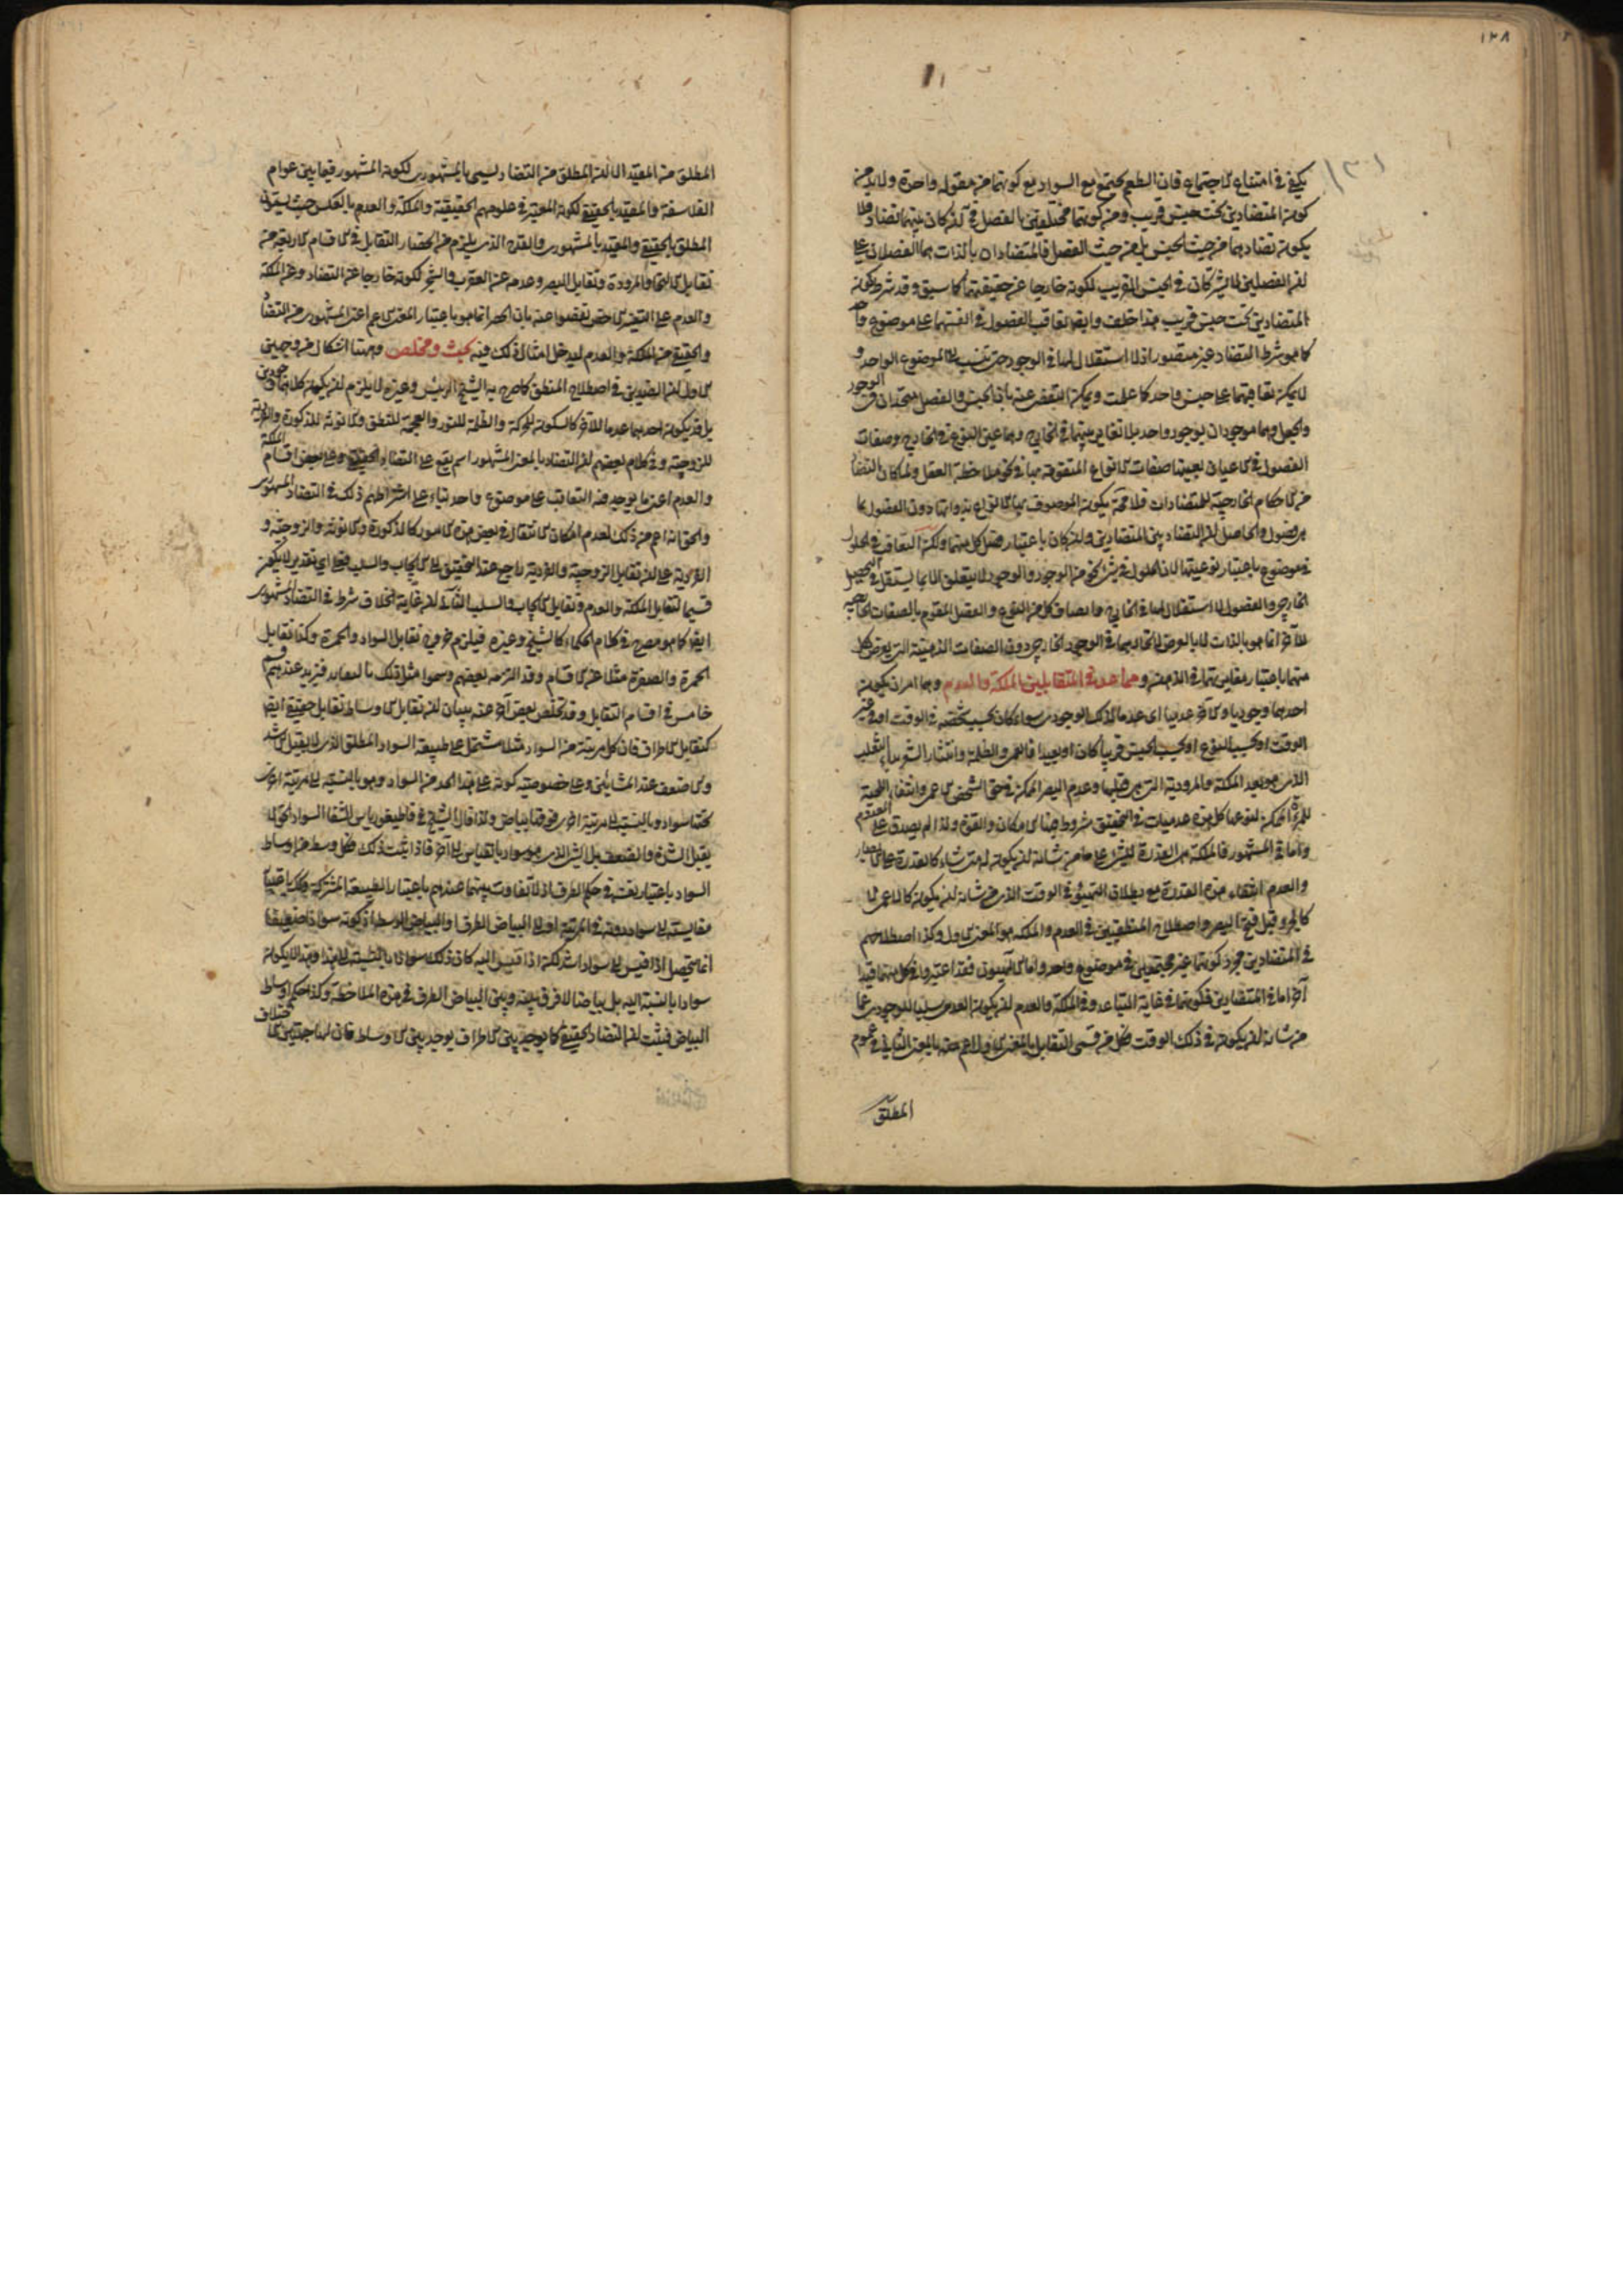 ١٣٨
١٣١
يكفي في امتناع الاجتماع فان الطعم يجتمع مع السواد مع كونهما من مقولة واحدة ولا بد من
كون المتضادين تحت جنس قريب ومن كونهما مختلفين بالفصل ثم لو كان بينهما تضاد فلا
يكون تضادهما من حيث الجنس بل من حيث الفصل فالمتضادان بالذات هما الفصلان على
ان الفصلين لا يشتركان في الجنس القريب لكونه خارجا عن حقيقتهما كما سبق وقد شرط كون
المتضادين تحت جنس قريب هذا خلف وايضا تعاقب الفصول في انفسهما على موضوع واحد
كما هو شرط التضاد غير متصور اذ لا استقلال لها في الوجود حتى تنسب الى الموضوع الواحد و
لا يمكن تعاقبهما على جنس واحد كما علمت ويمكن التفصي عنه بان الجنس والفصل متحدان في الوجود
والجعل وهما موجودان بوجود واحد بلا تغاير بينهما في الخارج وهما عين النوع في الخارج وصفات
الفصول في الاعيان بعينها صفات الانواع المتقومة بها في نحو ملاحظة العقل ولما كان التضاد
من الاحكام الخارجية للمتضادات فلا محة يكون الموصوف بها الانواع بذواتها دون الفصول بما
هي فصول والحاصل ان التضاد بين المتضادين وان كان باعتبار فصل كل منهما ولكن التعاقب في الحلول
في موضوع باعتبار نوعيتهما لان الحلول في شيء نحو من الوجود والوجود لا يتعلق الا بما يستقل في التحصيل
الخارجي والفصول لا استقلال لها في الخارج واتصاف كل من النوع والفصل المقوم بالصفات الخارجية
للآخر انما هو بالذات لا بالعرض لاتحادهما في الوجود الخارجي دون الصفات الذهنية التي يعرض كل
منهما باعتبار مغايرتهما في الذهن ومما عد في المتقابلين الملكة والعدم وهما امران يكون
احدهما وجوديا والاخر عدميا اي عدما لذلك الوجودي سواء كان بحسب شخصه في الوقت او في غير
الوقت او بحسب النوع او بحسب الجنس قريبا كان او بعيدا فالعمى والظلمة وانتثار الشعر بداء الثعلب
الذي هو بعد الملكة والمرودية التي هي قبلها وعدم البصر الممكن في حق الشخص الاعمى وانتفاء اللحية
للمرأة الممكن لنوعها كل هذه عدميات في التحقيق مشروط فيها الامكان والقوة ولذا لم يصدق على المعدوم
واما في المشهور فالملكة هي القدرة للشيء على ما من شانه ان يكون له متى شاء كالقدرة على الابصار
والعدم انتفاء هذه القدرة مع بطلان التهيؤ في الوقت الذي من شانه ان يكون كالاعمى لا
كالجرو قبل فتح البصر واصطلاح المنطقيين في العدم والملكة هو المعنى الاول وكذا اصطلاحهم
في المتضادين مجرد كونهما غير مجتمعين في موضوع واحد واما الالهيون فقد اعتبروا في كل منهما قيدا
آخر اما في المتضادين فكونهما في غاية التباعد وفي الملكة والعدم ان يكون العدمي سلبا للوجودي عما
من شانه ان يكون في ذلك الوقت فكل من قسمي التقابل بالمعنى الاول اعم منه بالمعنى الثاني عموم
المطلق
المطلق من المقيد الا ان المطلق من التضاد ليسمى بالمشهوري لكونه المشهور فيما بين عوام
الفلاسفة والمقيد بالحقيقي لكونه المعتبر في علومهم الحقيقية والملكة والعدم بالعكس حيث يسمون
المطلق بالحقيقي والمقيد بالمشهوري والقدح الذي يلزم من انحصار التقابل في الاقسام الاربعة من
تقابل الالتحاء والمرودة وتقابل البصر وعدمه عن العقرب والشجر لكونه خارجا عن التضاد وعن الملكة
والعدم على التفسير الاخص تفصوا عنه بان الحصر انما هو باعتبار المعنى الاعم اعني المشهوري من التضاد
والحقيقي من الملكة والعدم ليدخل امثال ذلك فيه بحث ومخلص وههنا اشكال من وجهين
الاول ان الضدين في اصطلاح المنطق كما صرح به الشيخ الرئيس وغيره لا يلزم ان يكون كلاهما وجوديين
بل قد يكون احدهما عدما للاخر كالسكون للحركة والظلمة للنور والعجمة للنطق والانوثة للذكورة والفردية
للزوجية وفي كلام بعضهم ان التضاد بالمعنى المشهور اسم يقع على التضاد الحقيقي وعلى بعض اقسام الملكة
والعدم اعني ما يوجد فيه التعاقب على موضوع واحد بناء على اشتراطهم ذلك في التضاد المشهوري
والحق انه اعم من ذلك لعدم امكان الانتقال في بعض هذه الامور كالذكورة والانوثة والزوجية و
الفردية على ان تقابل الزوجية والفردية راجع عند التحقيق الى الايجاب والسلب فعلى اي تقدير لا يكون
قسيما لتقابل الملكة والعدم وتقابل الايجاب والسلب الثاني ان غاية الخلاف شرط في التضاد المشهوري
ايضا كما هو مصرح في كلام الحكماء كالشيخ وغيره فيلزم خروج تقابل السواد والحمرة وكذا تقابل
الحمرة والصفرة مثلا عن الاقسام وقد التزمه بعضهم وسموا مثل ذلك بالتعاند فيزيد عندهم قسم
خامس في اقسام التقابل وقد تخلص بعض آخر عنه ببيان ان تقابل الاوساط تقابل حقيقي ايضا
كتقابل الاطراف فان كل مرتبة من السواد مثلا مشتمل على طبيعة السواد المطلق الذي لا يقبل الاشد
والاضعف عند المشائين وعلى خصوصية كونه على هذا الحد من السواد وهو بالنسبة الى مرتبة اخرى
تحتها سواد وبالنسبة الى مرتبة اخرى فوقها بياض ولذا قال الشيخ في قاطيغورياس الشفا السواد الحق لا
يقبل الشدة والضعف بل الشيء الذي هو سواد بالقياس الى آخر فاذا ثبت ذلك فكل وسط من اوساط
السواد باعتبار نفسه في حكم الطرف اذ لا تفاوت بينهما عندهم باعتبار الطبيعة المشتركة وكذا باعتبار
مقايسته الى سواد دونه في المرتبة او الى البياض الطرف او البياض الوسط اذ كونه سوادا ضعيفا
انما يحصل اذا قيس الى سواد اشد لكنه اذا قيس اليه كان ذلك سوادا بالنسبة الى هذا وهذا لا يكون
سوادا بالنسبة اليه بل بياضا لا فرق بينه وبين البياض الطرف في هذه الملاحظة وكذا حكم اوساط
البياض فيثبت ان التضاد الحقيقي كما يوجد بين الاطراف يوجد بين الاوساط فان لها جهتين الاختلاف